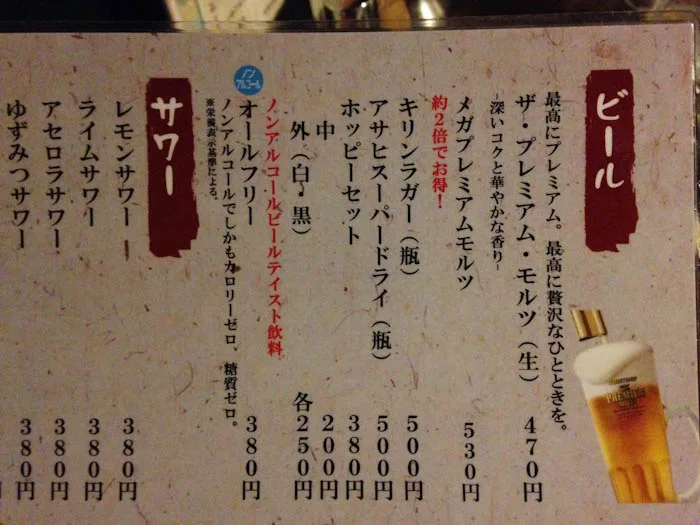 ビール
最高にプレミアム。最高に贅沢なひとときを。
ザ・プレミアム・モルツ(生) 470円
-深いコクと華やかな香り-
メガプレミアムモルツ 530円
約2倍でお得!
キリンラガー(瓶) 500円
アサヒスーパードライ(瓶) 500円
ホッピーセット 380円
中 200円
外(白・黒) 各250円
ノンアルコールビールテイスト飲料
ノンアルコール
オールフリー 380円
ノンアルコールでしかもカロリーゼロ、糖質ゼロ。
※栄養表示基準による。
サワー
レモンサワー 380円
ライムサワー 380円
アセロラサワー 380円
ゆずみつサワー 380円
PREMIUM